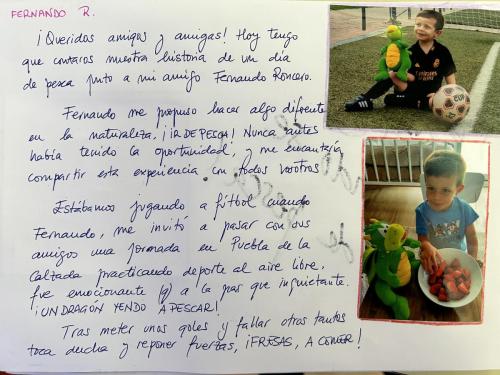 FERNANDO R.
¡Queridos amigos y amigas! Hoy tengo
que contaros nuestra historia de un día
de pesca junto a mi amigo Fernando Roncero.
Fernando me propuso hacer algo diferente
en la naturaleza. ¡IR DE PESCA! Nunca antes
había tenido la oportunidad, y me encantaría
compartir esta experiencia con todos vosotros
Estábamos jugando a fútbol cuando
Fernando, me invitó a pasar con sus
amigos una jornada en Puebla de la
Calzada practicando deporte al aire libre,
fue emocionante a la par que inquietante.
¡UN DRAGÓN YENDO A PESCAR!
Tras meter unos goles y fallar otros tantos
toca ducha y reponer fuerzas, ¡FRESAS, A COMER!